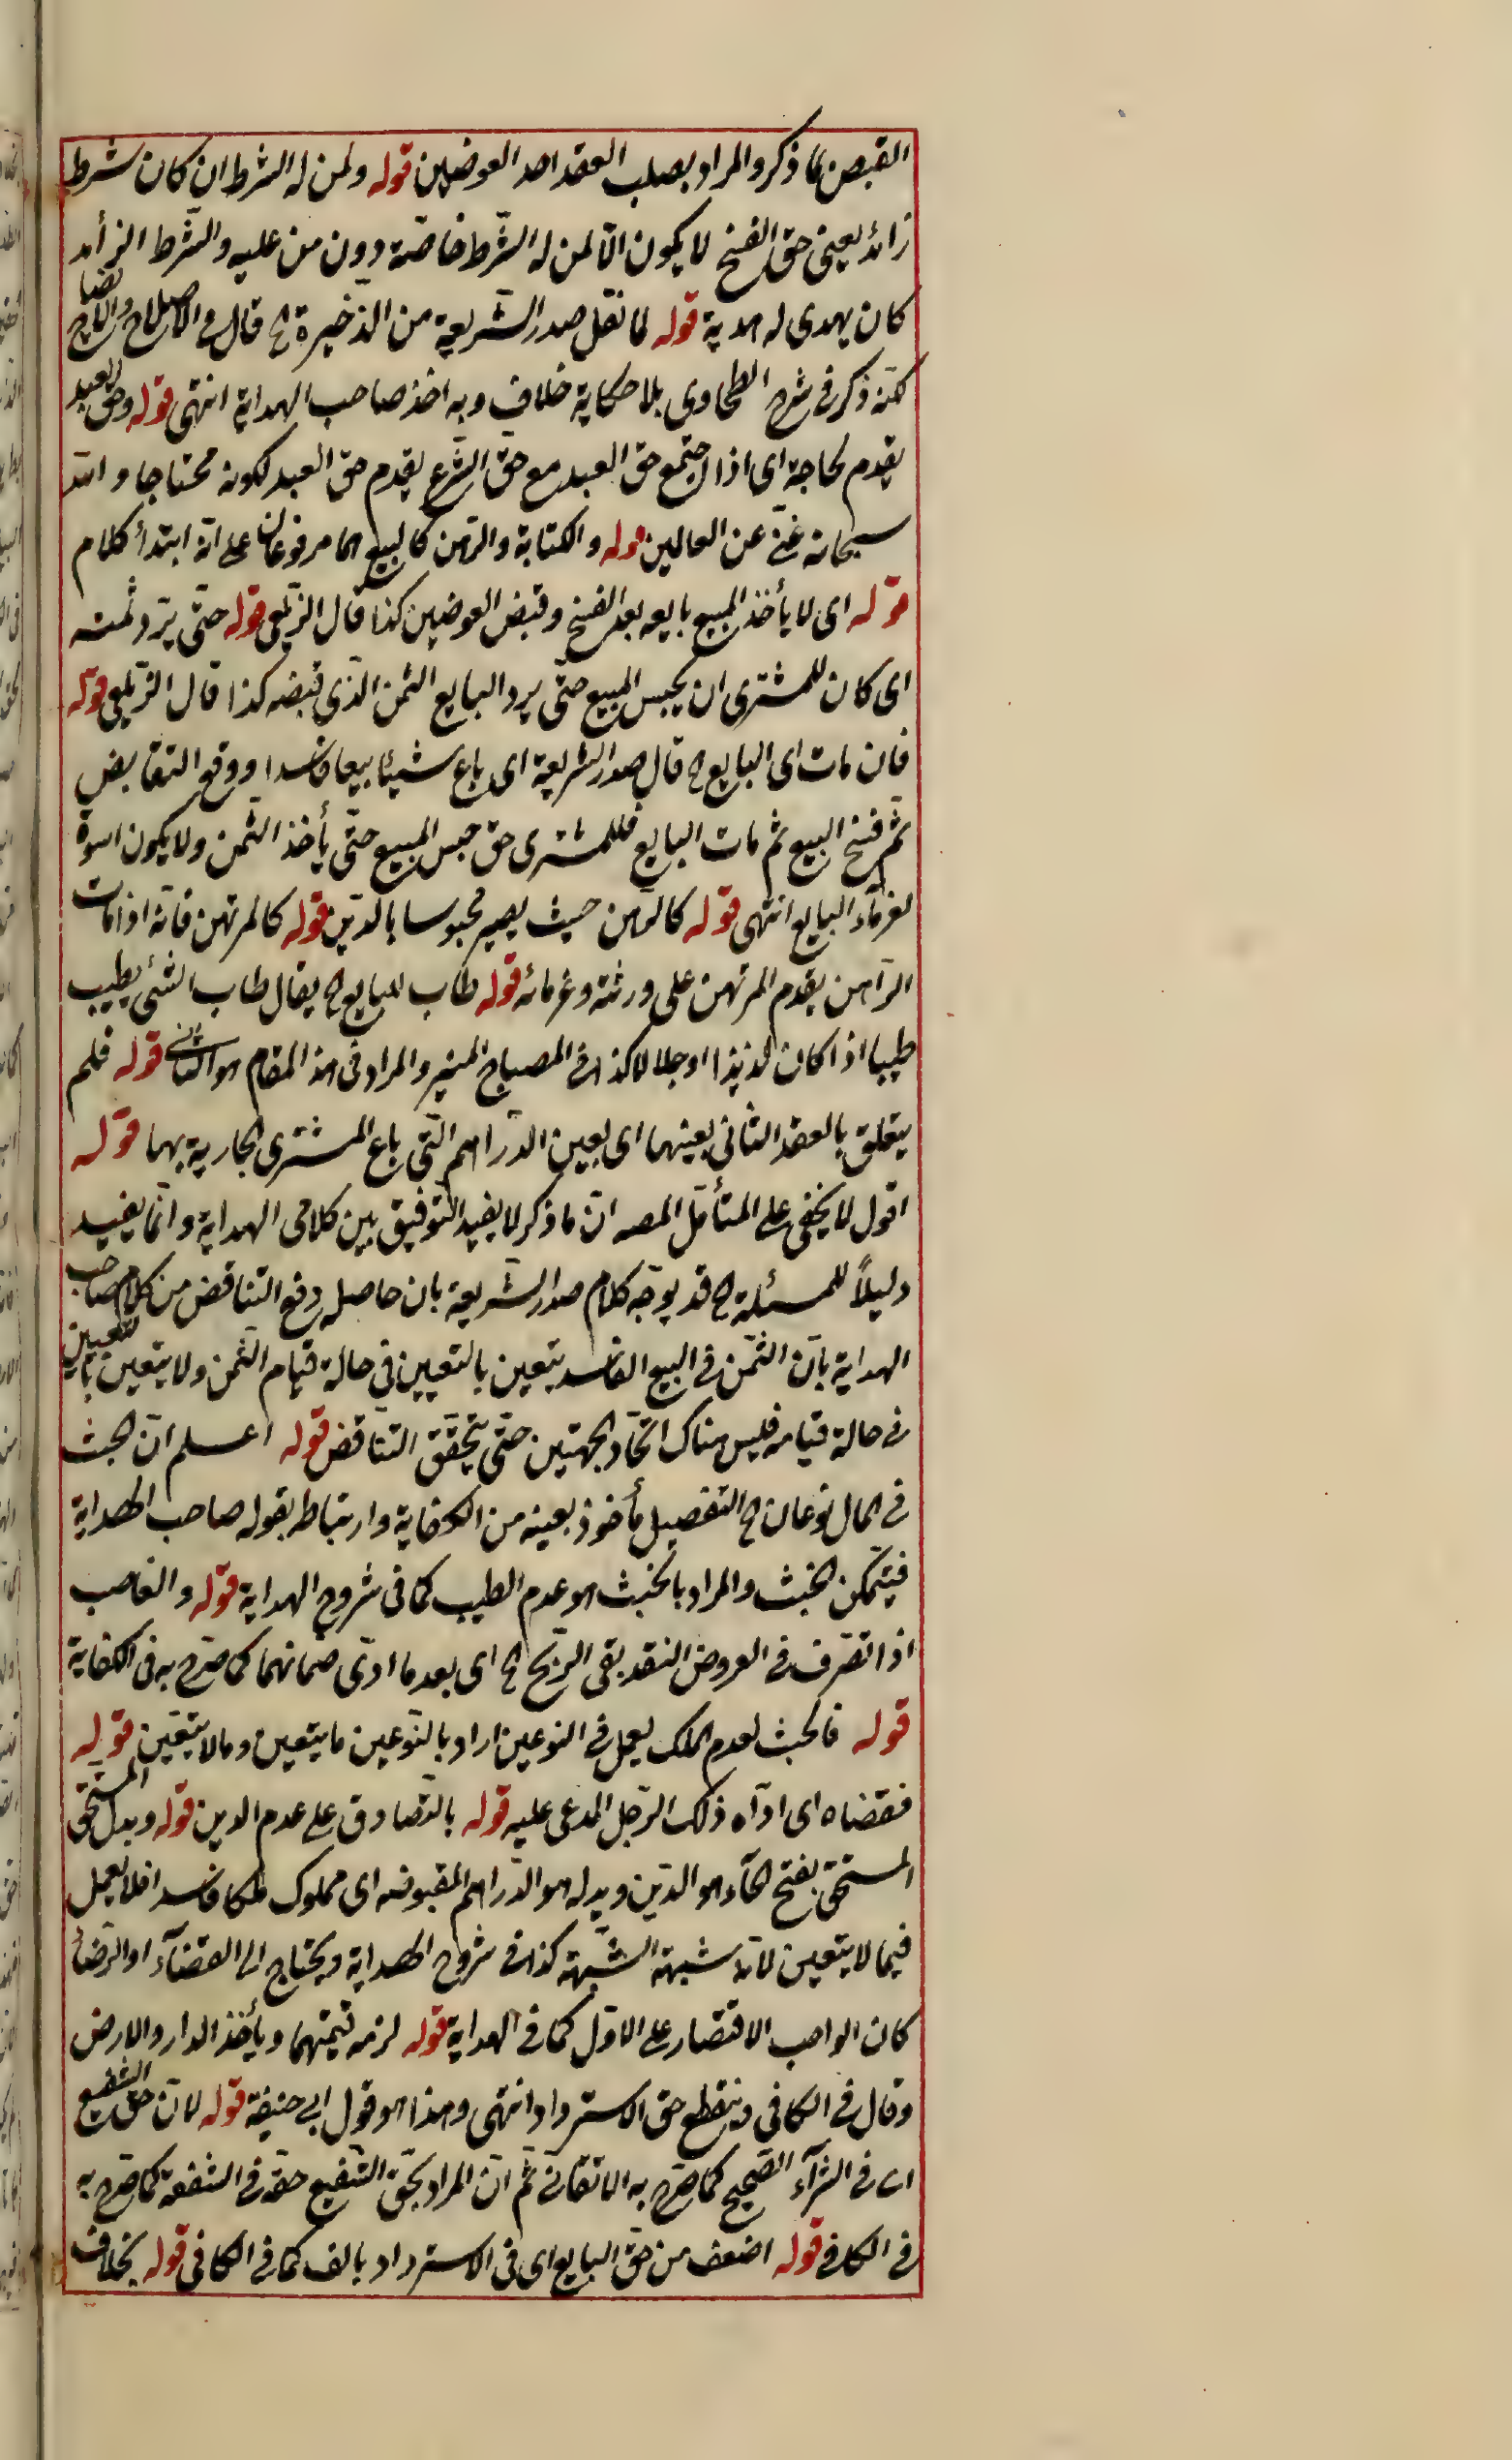 القبض لما ذكر والمراد بصلب العقد احد العوضين قوله ولمن له الشرط ان كان شرط
زائد يعنى حق الفسخ لا يكون الا لمن له الشرط خاصة دون من عليه والشرط الزائد
كان يهدى له هدية قوله لما نقل صدر الشريعة من الذخيرة الخ قال فى الاصلاح والايضاح
لكنه ذكر فى شرح الطحاوى بلا حكاية خلاف وبه اخذ صاحب الهداية انتهى قوله وحق العبد
يقدم لحاجة اى اذا اجتمع حق العبد مع حق الشرع يقدم حق العبد لكونه محتاجا والله
سبحانه غنى عن العالمين قوله والكتابة والرهن كالبيع هما مرفوعان على انه ابتدأ كلام
قوله اى لا يأخذ المبيع بايعه بعد الفسخ وقبض العوضين كذا قال الزيلعى قوله حتى يرد ثمنه
اى كان للمشترى ان يحبس المبيع حتى يرد البايع الثمن الذى قبضه كذا قال الزيلعى قوله
فان مات اى البايع الخ قال صدر الشريعة اى باع شيئا بيعا فاسدا ووقع التقابض
ثم فسخ البيع ثم مات البايع فللمشترى حق حبس المبيع حتى يأخذ الثمن ولا يكون اسوة
لغرماء البايع انتهى قوله كالرهن حيث يصير محبوسا بالدين قوله كالمرتهن فانه اذا مات
الراهن يقدم المرتهن على ورثته وغرمائه قوله طاب للبايع الخ يقال طاب الشئ يطيب
طيبا اذا كان لذيذا او حلالا كذا فى المصباح المنير والمراد فى هذا المقام هو الثانى قوله فلم
يتعلق بالعقد الثانى بعينهما اى بعين الدراهم التى باع المشترى الجارية بهما قوله
اقول لا يخفى على المتأمل المصه ان ما ذكر لا يفيد التوفيق بين كلامى الهداية وانما يفيد
دليلاً للمسئلة الخ قد يوجه كلام صدر الشريعة بان حاصله دفع التناقض من كلام صاحب
الهداية بان الثمن فى البيع الفاسد يتعين بالتعيين فى حالة قيام الثمن ولا يتعين بالتعيين
فى حالة قيامه فليس هناك اتحاد الجهتين حتى يتحقق التناقض قوله اعلم ان الخبث
فى المال نوعان الخ التفصيل مأخوذ بعينه من الكفاية وارتباط بقوله صاحب الهداية
فيتمكن الخبث والمراد بالخبث هو عدم الطيب كما فى شروح الهداية قوله والغاصب
اذا تصرف فى العروض النقد بقى الربح الخ اى بعد ما ادى ضمانهما كما صرح به فى الكفاية
قوله فالخبث لعدم الملك يعمل فى النوعين اراد بالنوعين ما يتعين وما لا يتعين قوله
فقضاه اى اداه ذلك الرجل المدعى عليه قوله بالتصادق على عدم الدين قوله وبدل المستحق
المستحق بفتح الحاء هو الدين وبدله هو الدراهم المقبوضه اى مملوك ملكا فاسدا فلا يعمل
فيما لا يتعين لانه شبهة الشبهة كذا فى شروح الهداية ويحتاج الى القضاء او الرضا
كان الواجب الاقتصار على الاول كما فى الهداية قوله لزمه قيمتهما ويأخذ الدار والارض
وقال فى الكافى وينقطع حق الاسترداد انتهى وهذا هو قول ابى حنيفة قوله لان حق الشفيع
اى فى الشراء الصحيح كما صرح به الاتقانى ثم ان المراد بحق الشفيع حقه فى الشفعة كما صرح به
فى الكافى قوله اضعف من حق البايع اى فى الاسترداد بالف كما فى الكافى قوله بخلاف